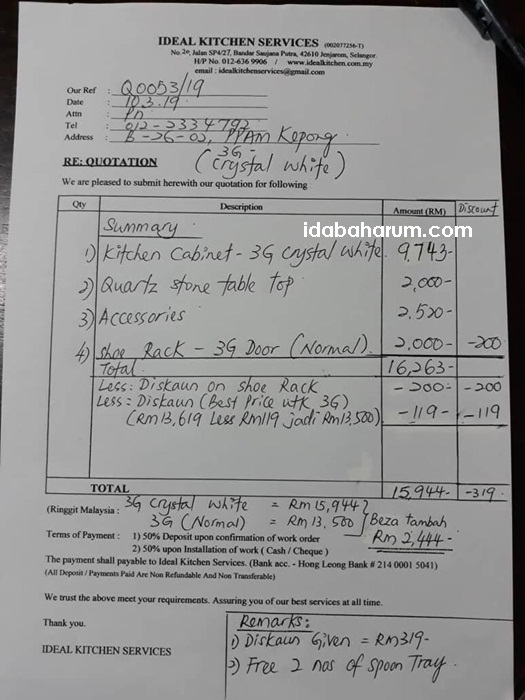 IDEAL KITCHEN SERVICES (002077256-T)
No. 20, Jalan SP4/27, Bandar Saujana Putra, 42610 Jenjarom, Selangor.
H/P No. 012-636 9906 / www.idealkitchen.com.my
email : idealkitchenservices@gmail.com
Our Ref : Q0053/19
Date : 10.3.19
Attn : Pn
Tel : 012-2334792
Address : B-26-02, PPAM Kepong.
RE: QUOTATION (3G - Crystal white)
We are pleased to submit herewith our quotation for following
Qty Description Amount (RM) Discount
Summary
idabaharum.com
1) Kitchen Cabinet - 3G Crystal white 9,743-
2) Quartz stone table top 2,000-
3) Accessories 2,520-
4) Shoe Rack - 3G Door (Normal). 2,000- -200
Total 16,263-
Less: Diskaun on shoe Rack -200- -200
Less: Diskaun (Best Price utk 3G)
(RM13,619 Less RM119 jadi RM13,500) -119- -119
TOTAL 15,944- -319-
(Ringgit Malaysia : 3G Crystal white = RM15,944
3G (Normal) = RM13,500 Beza tambah
Terms of Payment : 1) 50% Deposit upon confirmation of work order RM 2,444-
2) 50% upon Installation of work ( Cash / Cheque )
The payment shall payable to Ideal Kitchen Services. (Bank acc. - Hong Leong Bank # 214 0001 5041)
(All Deposit / Payments Paid Are Non Refundable And Non Transferable)
We trust the above meet your requirements. Assuring you of our best services at all time.
Thank you.
IDEAL KITCHEN SERVICES
Remarks:
1) Diskaun Given = RM319-
2) Free 2 nos of spoon Tray.